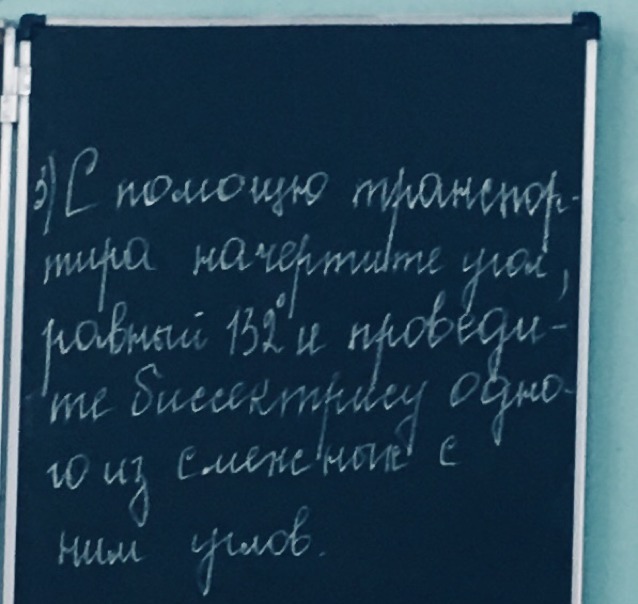 3) С помощю транспор-
тира начертите угол,
равный 132° и проведи-
те биссектрису одно-
го из смежных с
ним углов.